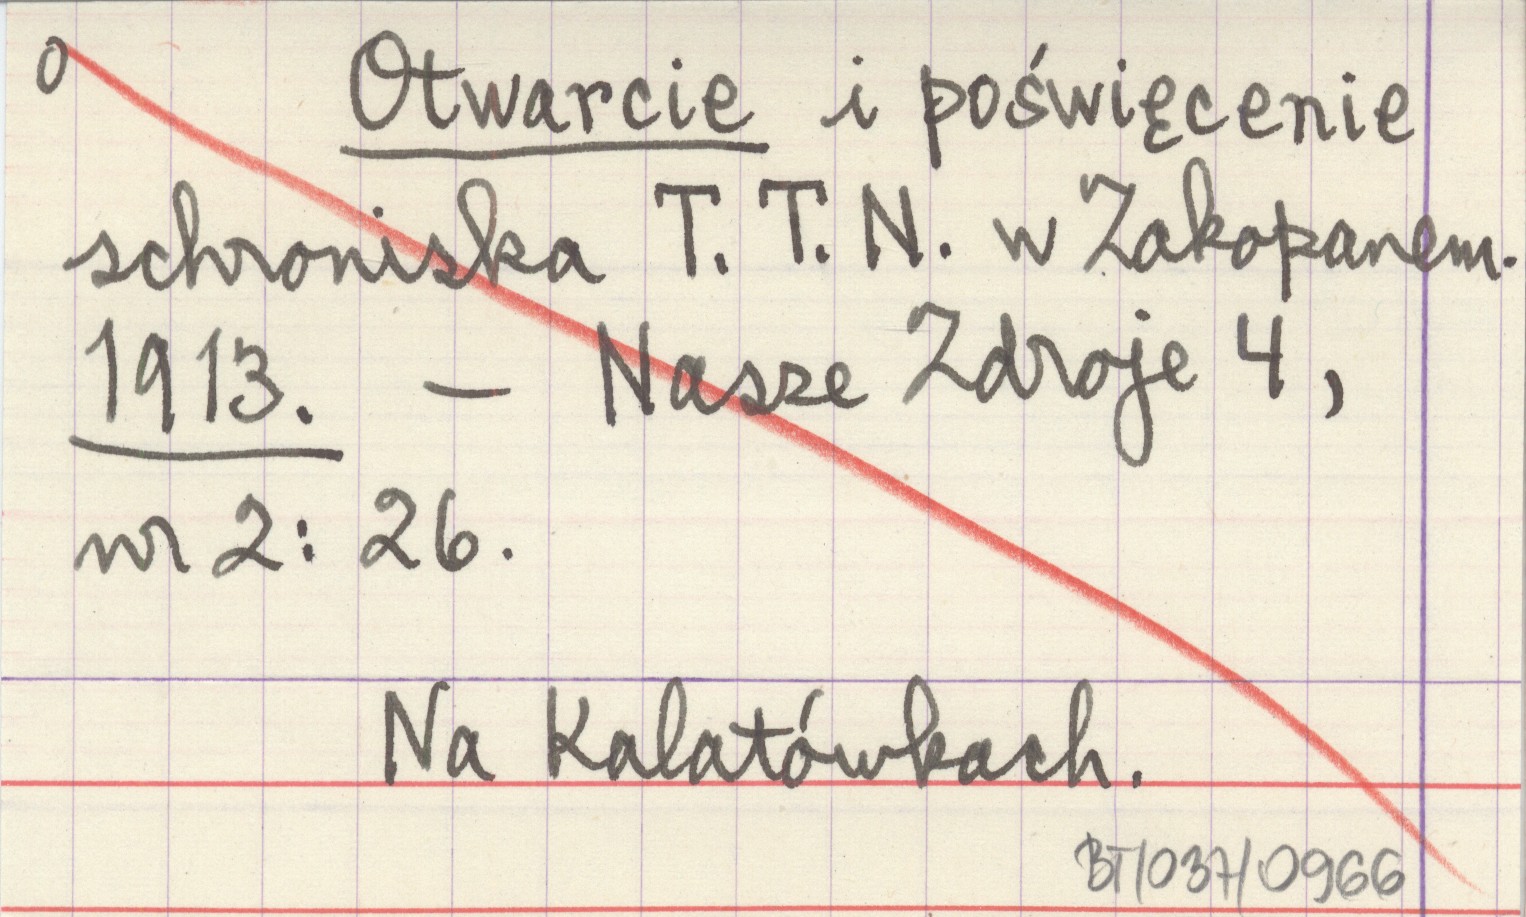 0 Otwarcie i poświęcenie
schroniska T. T. N. w Zakopanem.
1913. — Nasze Zdroje 4,
nr 2: 26.
Na Kalatówkach.
BT/037/0966